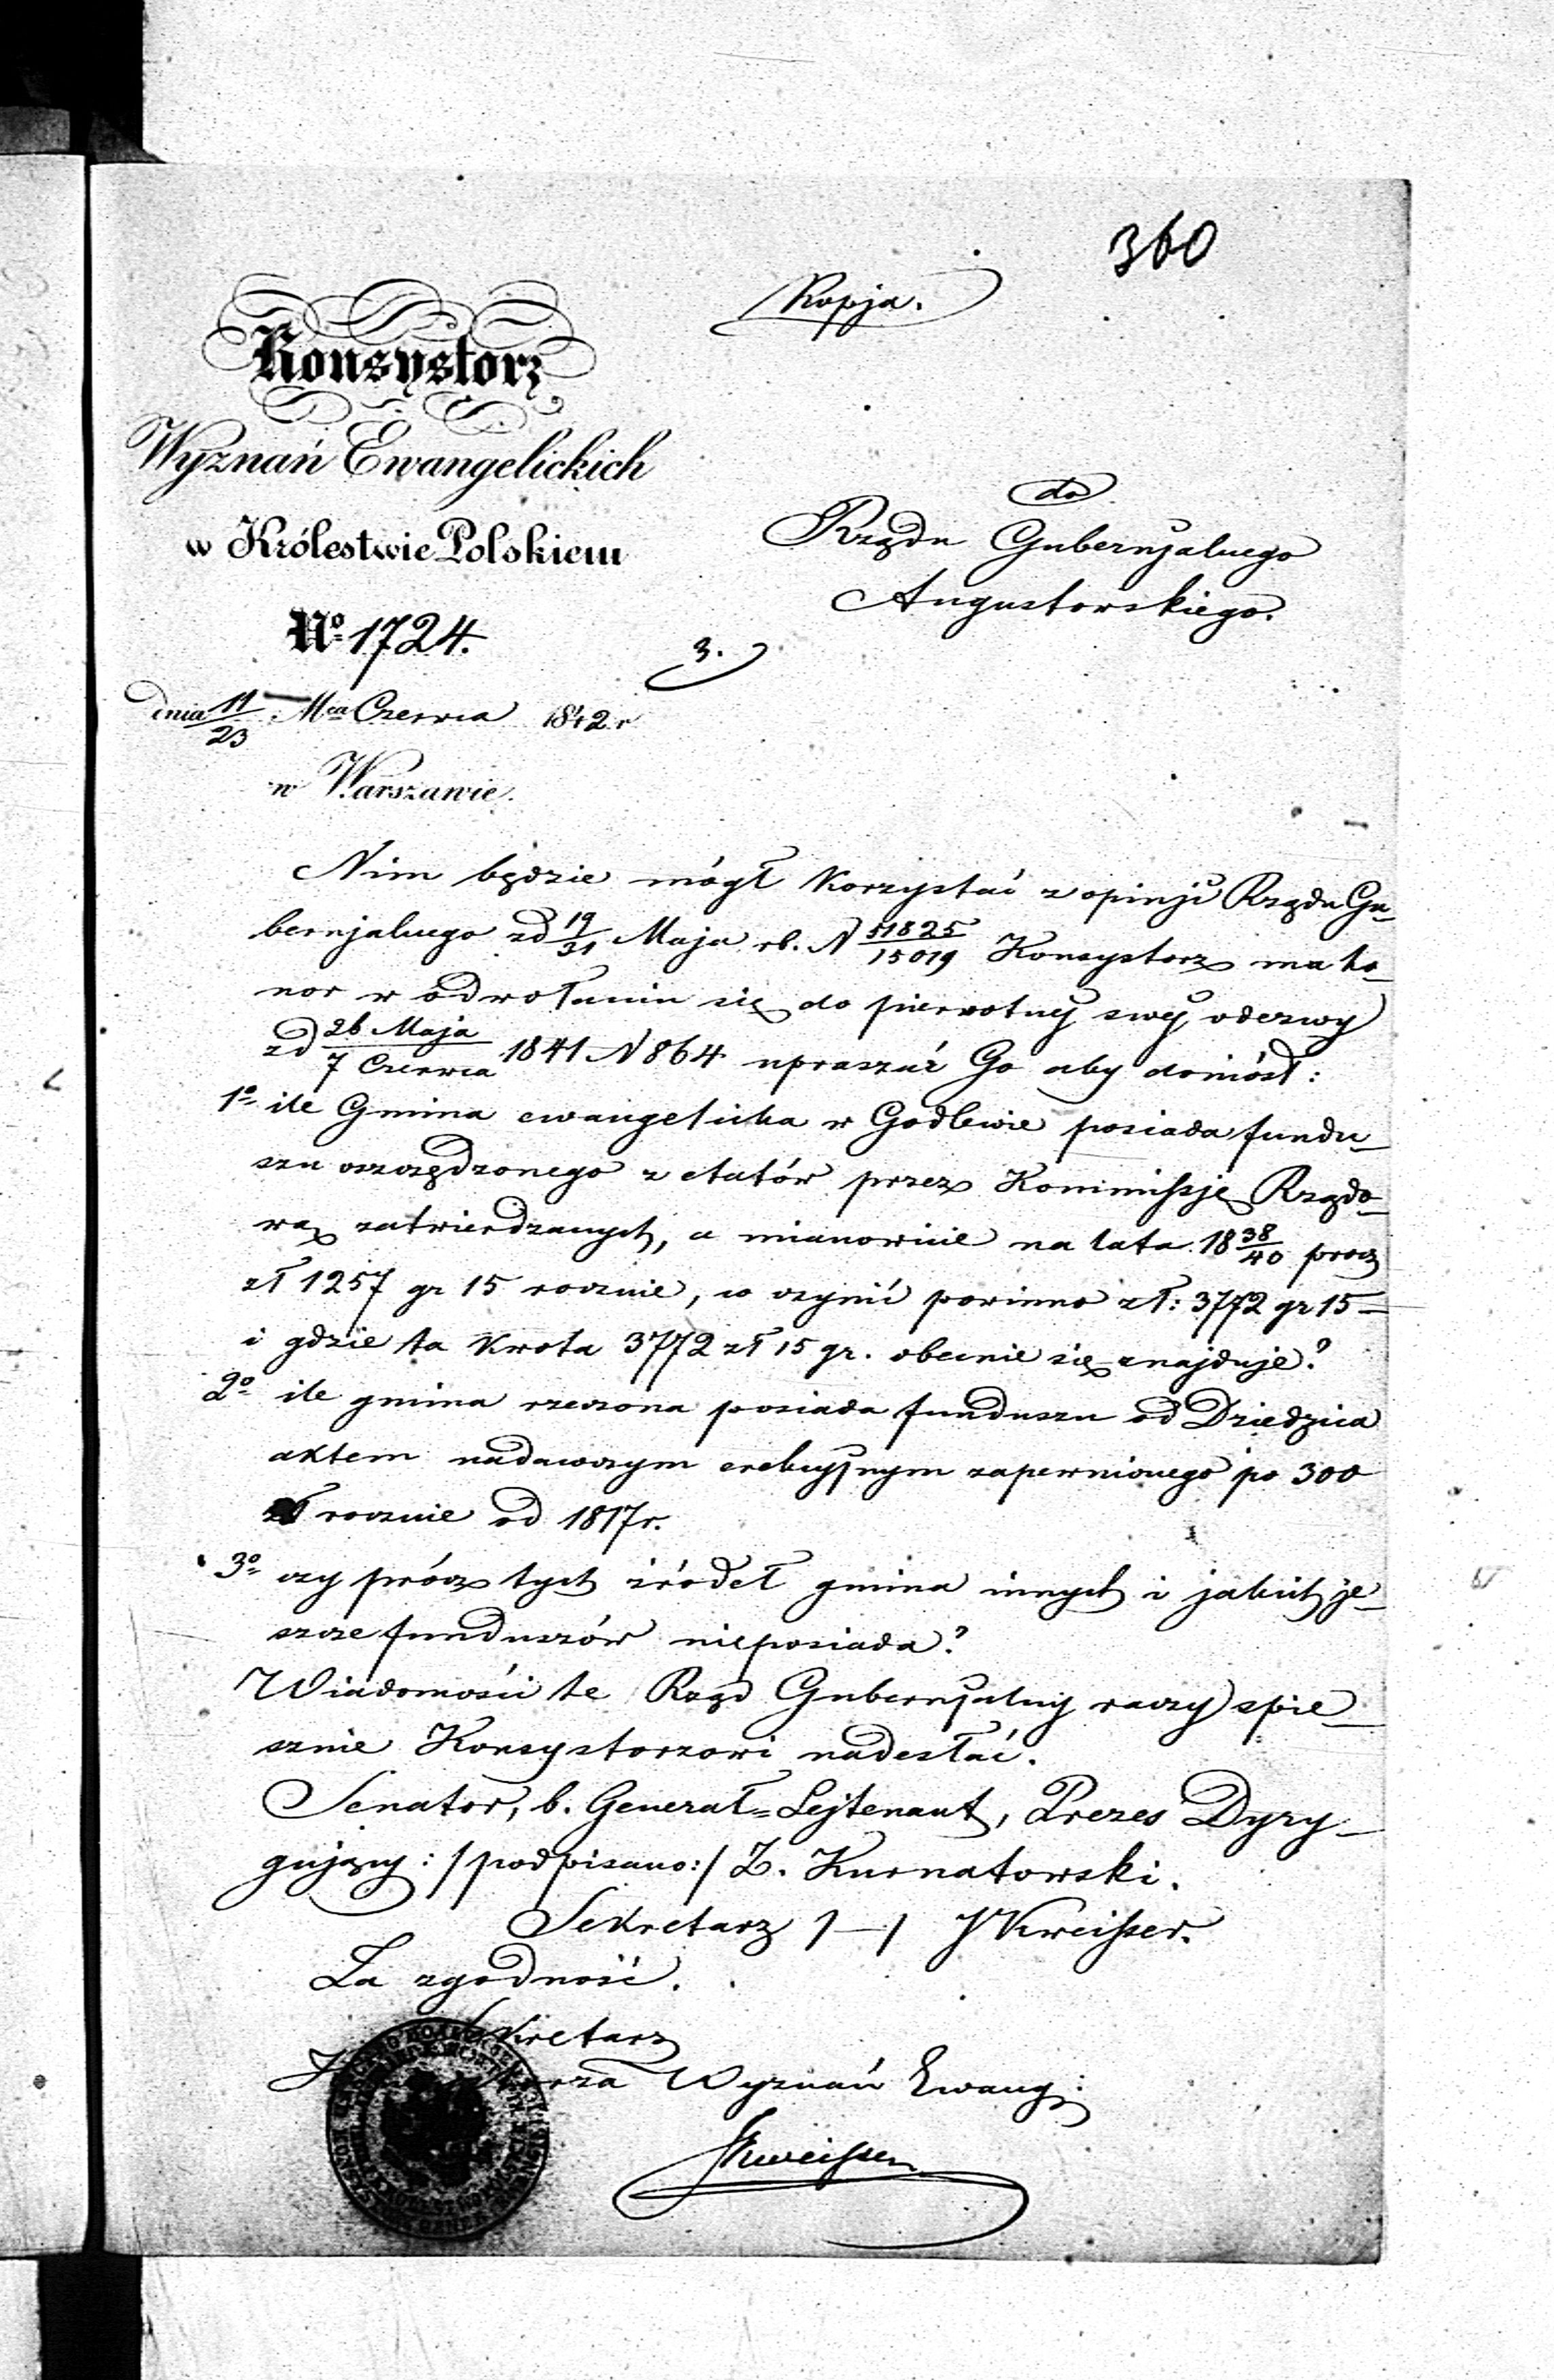 360
Kopja.
Konsystorz
Wyznań Ewangelickich
w Królestwie Polskiem
No 1724.
dnia 11/23 Mca Czerwca 1842 r
w Warszawie.
do
Rządu Gubernjalnego
Augustowskiego.
3.
Nim będzie mógł korzystać z opinji Rządu Gu-
bernjalnego zd 19/31 Maja rb. N 51825/15019 Konsystorz ma ho-
nor w odwołaniu się do pierwotnéj swéj odezwy
zd 26 Maja/7 Czerwca 1841 N 864 upraszać Go aby doniósł:
1o ile Gmina ewangelicka w Godlewie posiada fundu-
szu oszczędzonego z etatów przez Kommissję Rządo-
wą zatwierdzanych, a mianowicie na lata 18 38/40 procz
zł 1257 gr 15 rocznie, co czynić powinno zł: 3772 gr 15 –
i gdzie ta kwota 3772 zł 15 gr. obecnie się znajduje?
2o ile gmina rzeczona posiada funduszu od Dziedzica
aktem nadawczym erekcyjnym zapewnionego po 300
zł rocznie od 1817 r.
3o czy prócz tych źródeł gmina innych i jakich je-
szcze funduszów nieposiada?
Wiadomości te Rząd Gubernjalny raczy spie-
sznie Konsystorzowi nadesłać.
Senator, b. Generał=Lejtenant, Prezes Dyry-
gujący: /podpisano:/ Z. Kurnatowski.
Sekretarz /–/ J Kweisser.
Za zgodność.
Sekretarz
Wyznań Ewang:
JKweisser